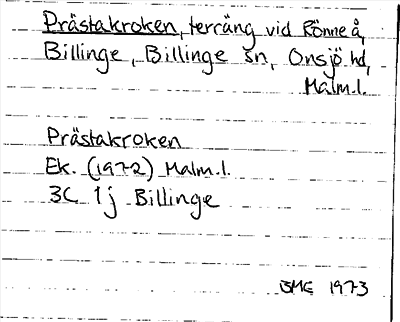 Prästakroken, terräng vid Rönne å,
Billinge, Billinge sn, Onsjö hd,
Malm.l.
Prästakroken
Ek. (1972) Malm.l.
3C 1j Billinge
BMG 1973